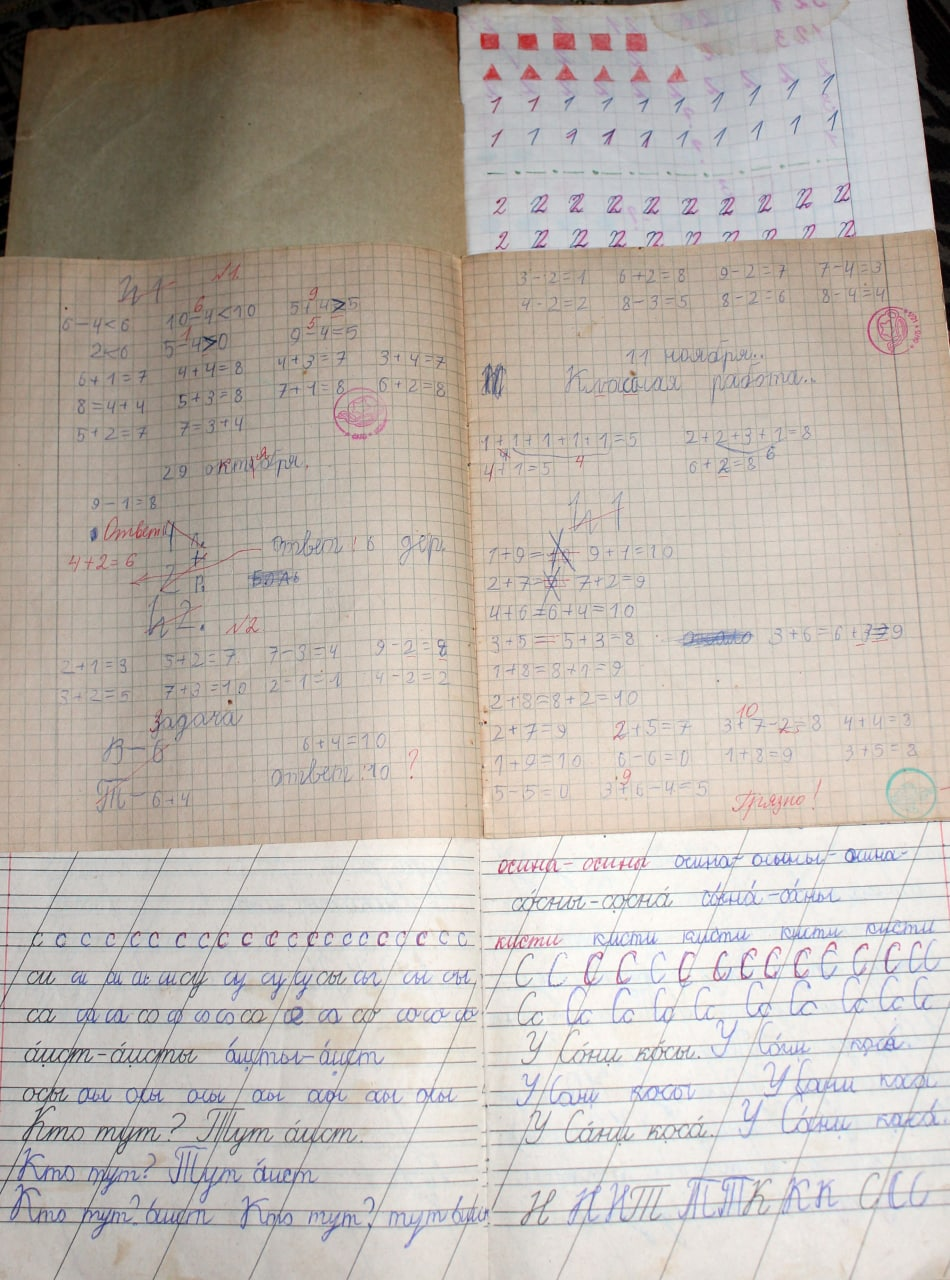 1 1 1 1 1 1 1 1 1 1
1 1 1 1 1 1 1 1 1 1
2 22 22 22 22 22 22 22 22 22
2 22 22 22 22 22 22 22 22 22
№1
6-4<6 10-4<10 5+4>5
6 9
2<6 5-4>0 9-4=5
1 5
6+1=7 4+4=8 4+3=7 3+4=7
8=4+4 5+3=8 7+1=8 6+2=8
5+2=7 7=3+4
29 октября.
9-1=8
Ответ
4+2=6
ответ: 6 дер.
№2
2+1=3 5+2=7 7-3=4 9-2=8
3+2=5 7+3=10 2-1=1 4-2=2
Задача
В-6 6+4=10
Т-6+4 ответ: 10 ?
3-2=1 6+2=8 9-2=7 7-4=3
4-2=2 8-3=5 8-2=6 8-4=4
11 ноября..
Классная работа..
1+1+1+1+1=5 2+2+3+1=8
4+1=5 4 6+2=8 6
1+9= 9+1=10
2+7= 7+2=9
4+6=6+4=10
3+5=5+3=8 3+6=6+3=9
1+8=8+1=9
2+8=8+2=10
2+7=9 2+5=7 3+7-2=8 4+4=8
10
1+9=10 6-6=0 1+8=9 3+5=8
5-5=0 3+6-4=5
9
Грязно!
с с с с с с с с с с с с с с с с с с с
си си си си си су су су су сы сы сы сы
са са са со со со со са са со со со со
аист-аисты аисты-аист
осы осы осы осы осы осы осы осы
Кто тут? Тут аист.
Кто тут? Тут аист
Кто тут? Кто тут? тут
осина-осины осина-осины-осина-
сосны-сосна сосна-сосны
кисти кисти кисти кисти кисти
С С С С С С С С С С С С С С С
Сс Сс Сс Сс Сс Сс Сс Сс Сс Сс
У Сони косы. У Сони коса.
У Сани косы У Сани коса
У Сани коса. У Сони коса.
Н Н Н Т Т Т К К К С С С